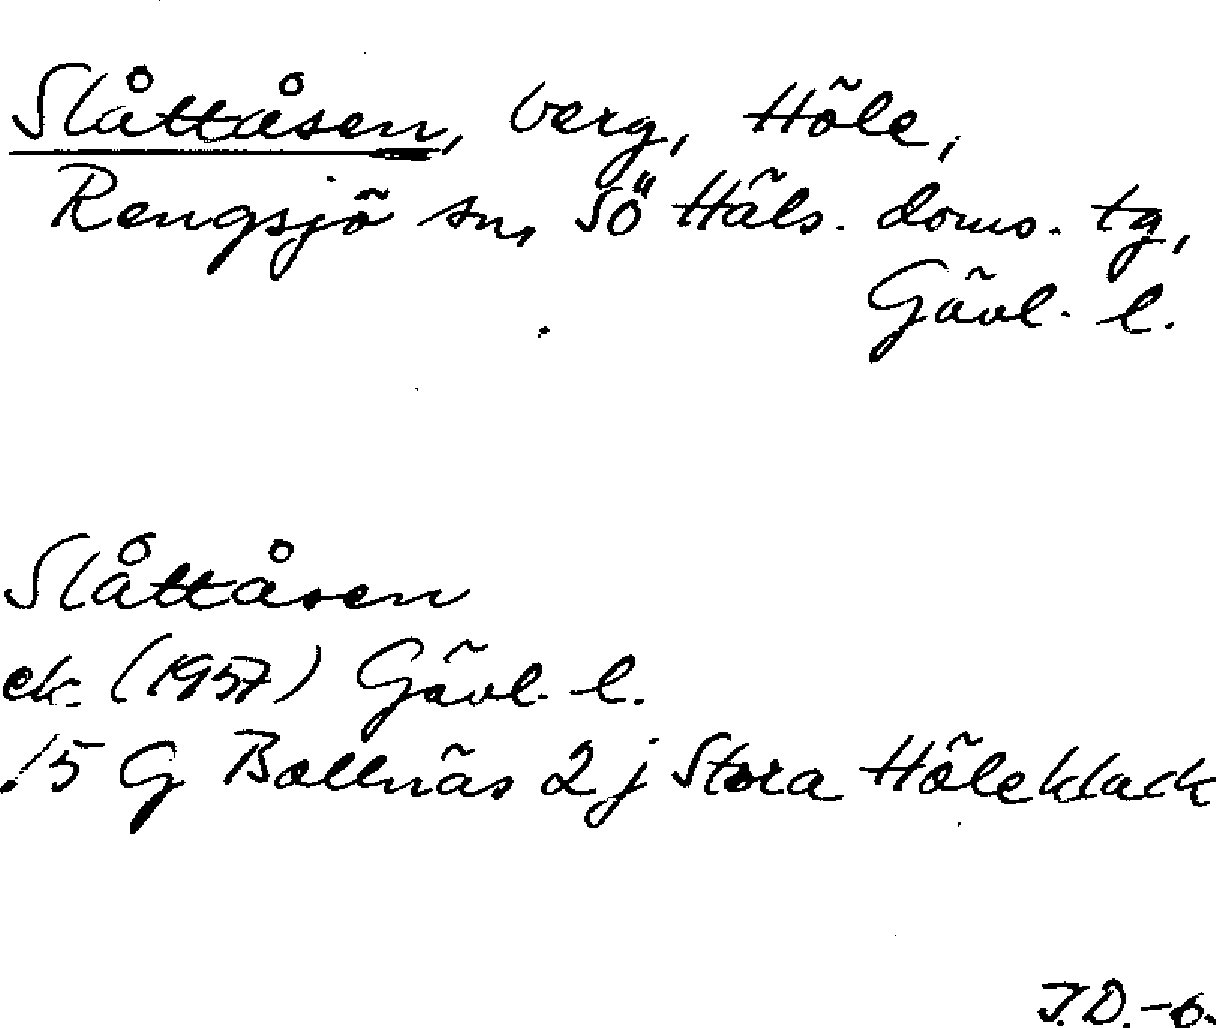 Slåttåsen, berg, Höle,
Rengsjö sn, Sö Häls. doms. tg,
Gävl. l.
Slåttåsen
ek. (1957) Gävl. l.
15 G Bollnäs 2 j Stora Höleklack
J.D.-6.